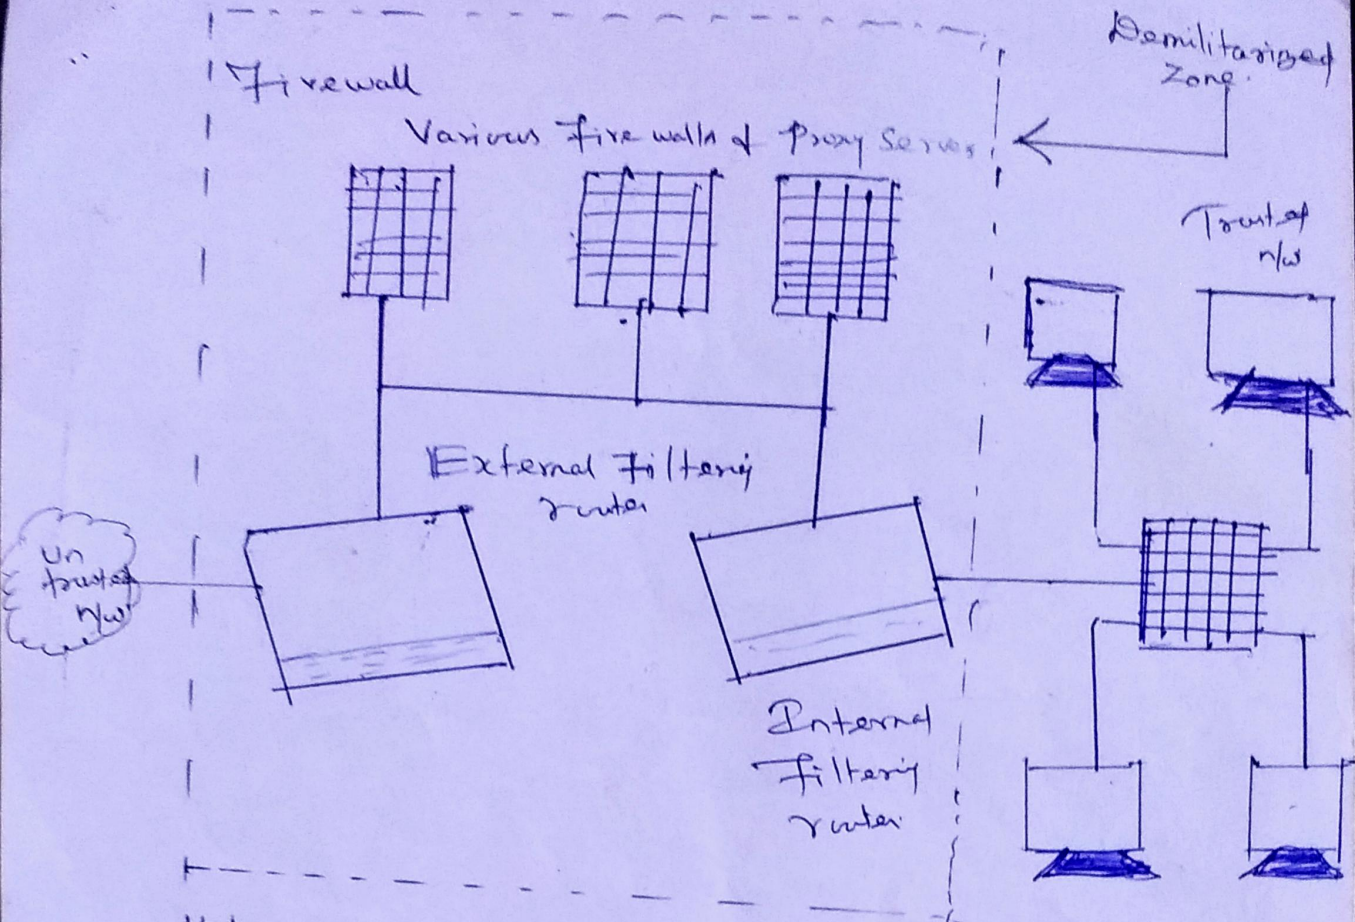 Demilitarized
Zone.
Firewall
Various Firewalls & Proxy Server
Trusted
n/w
External Filtering
router
Un
trusted
n/w
Internal
Filtering
router